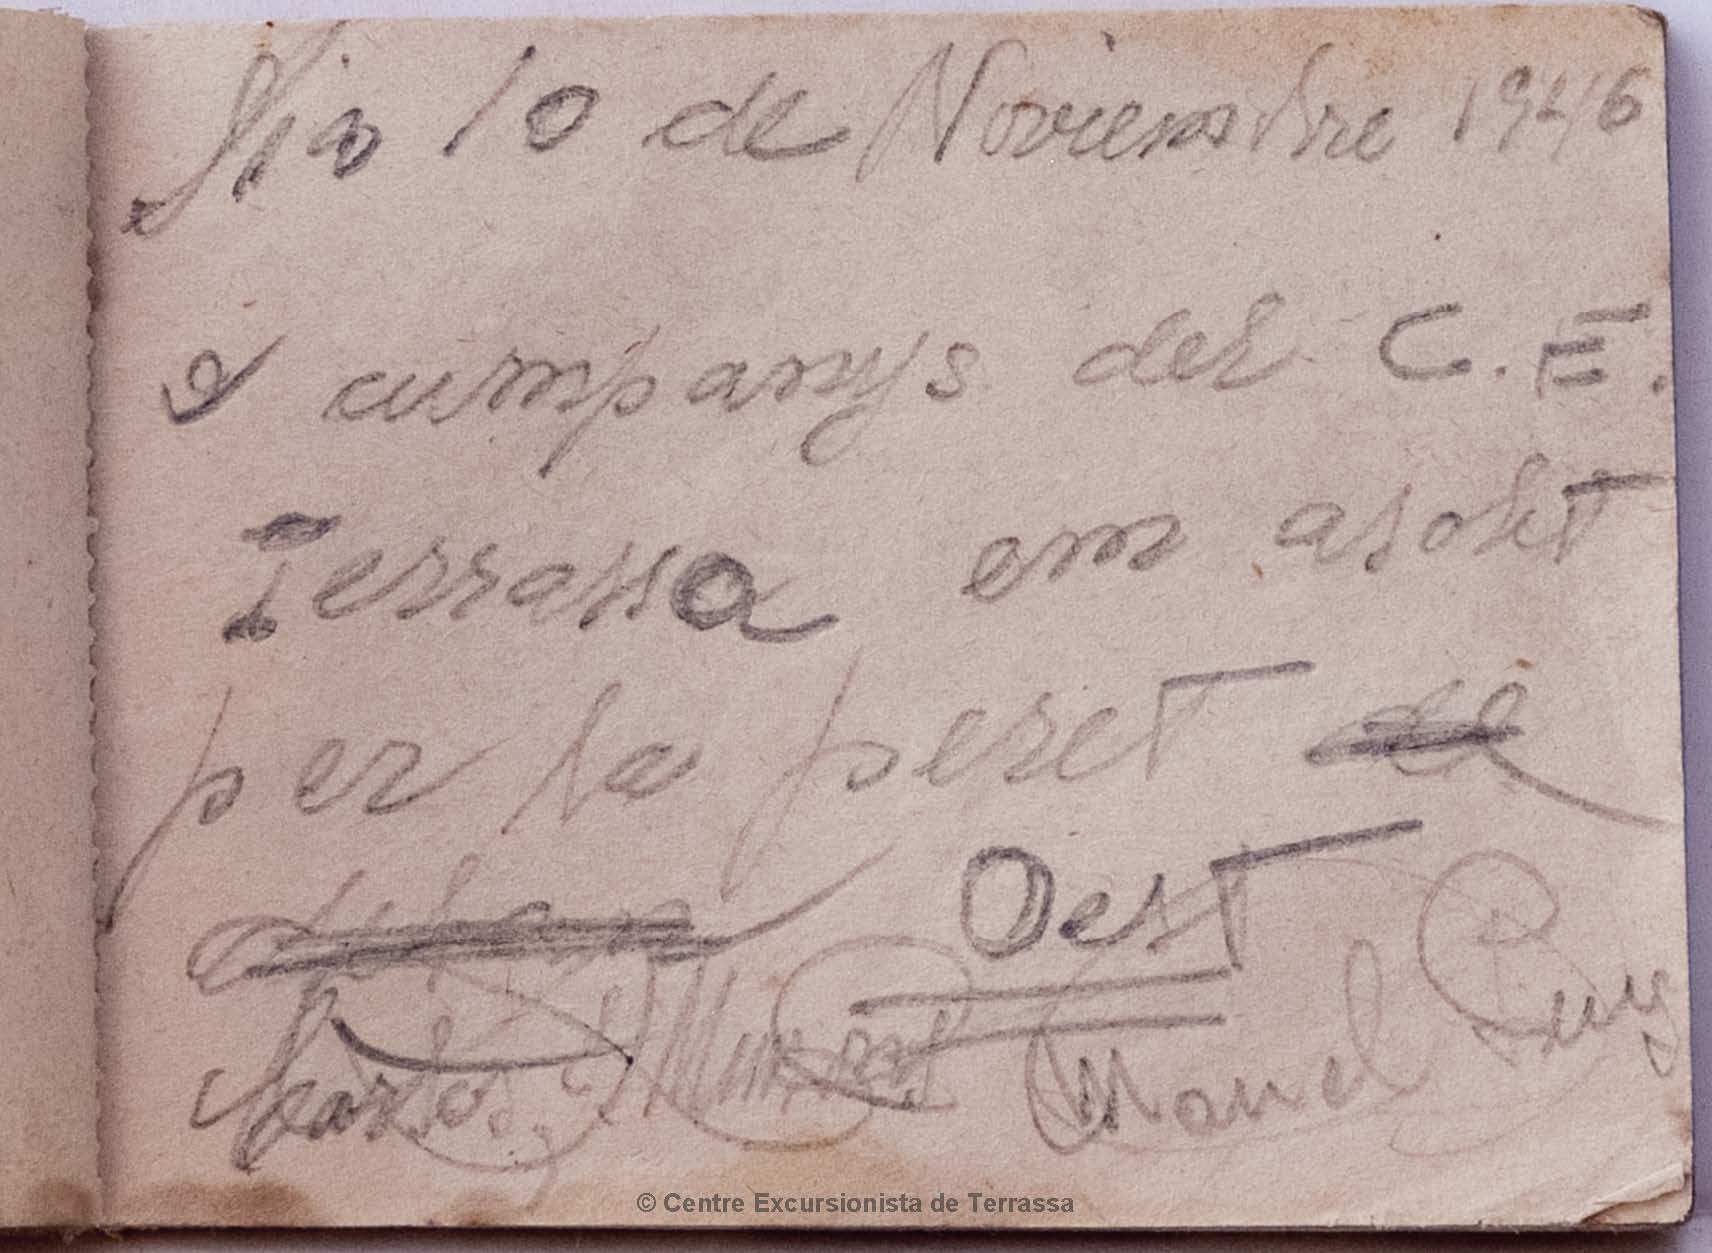 Dia 10 de Noviembre 1946
2 cumpanys del C.E.
Terrassa em asolit
per la peret de
Oest
Manel Puig
© Centre Excursionista de Terrassa